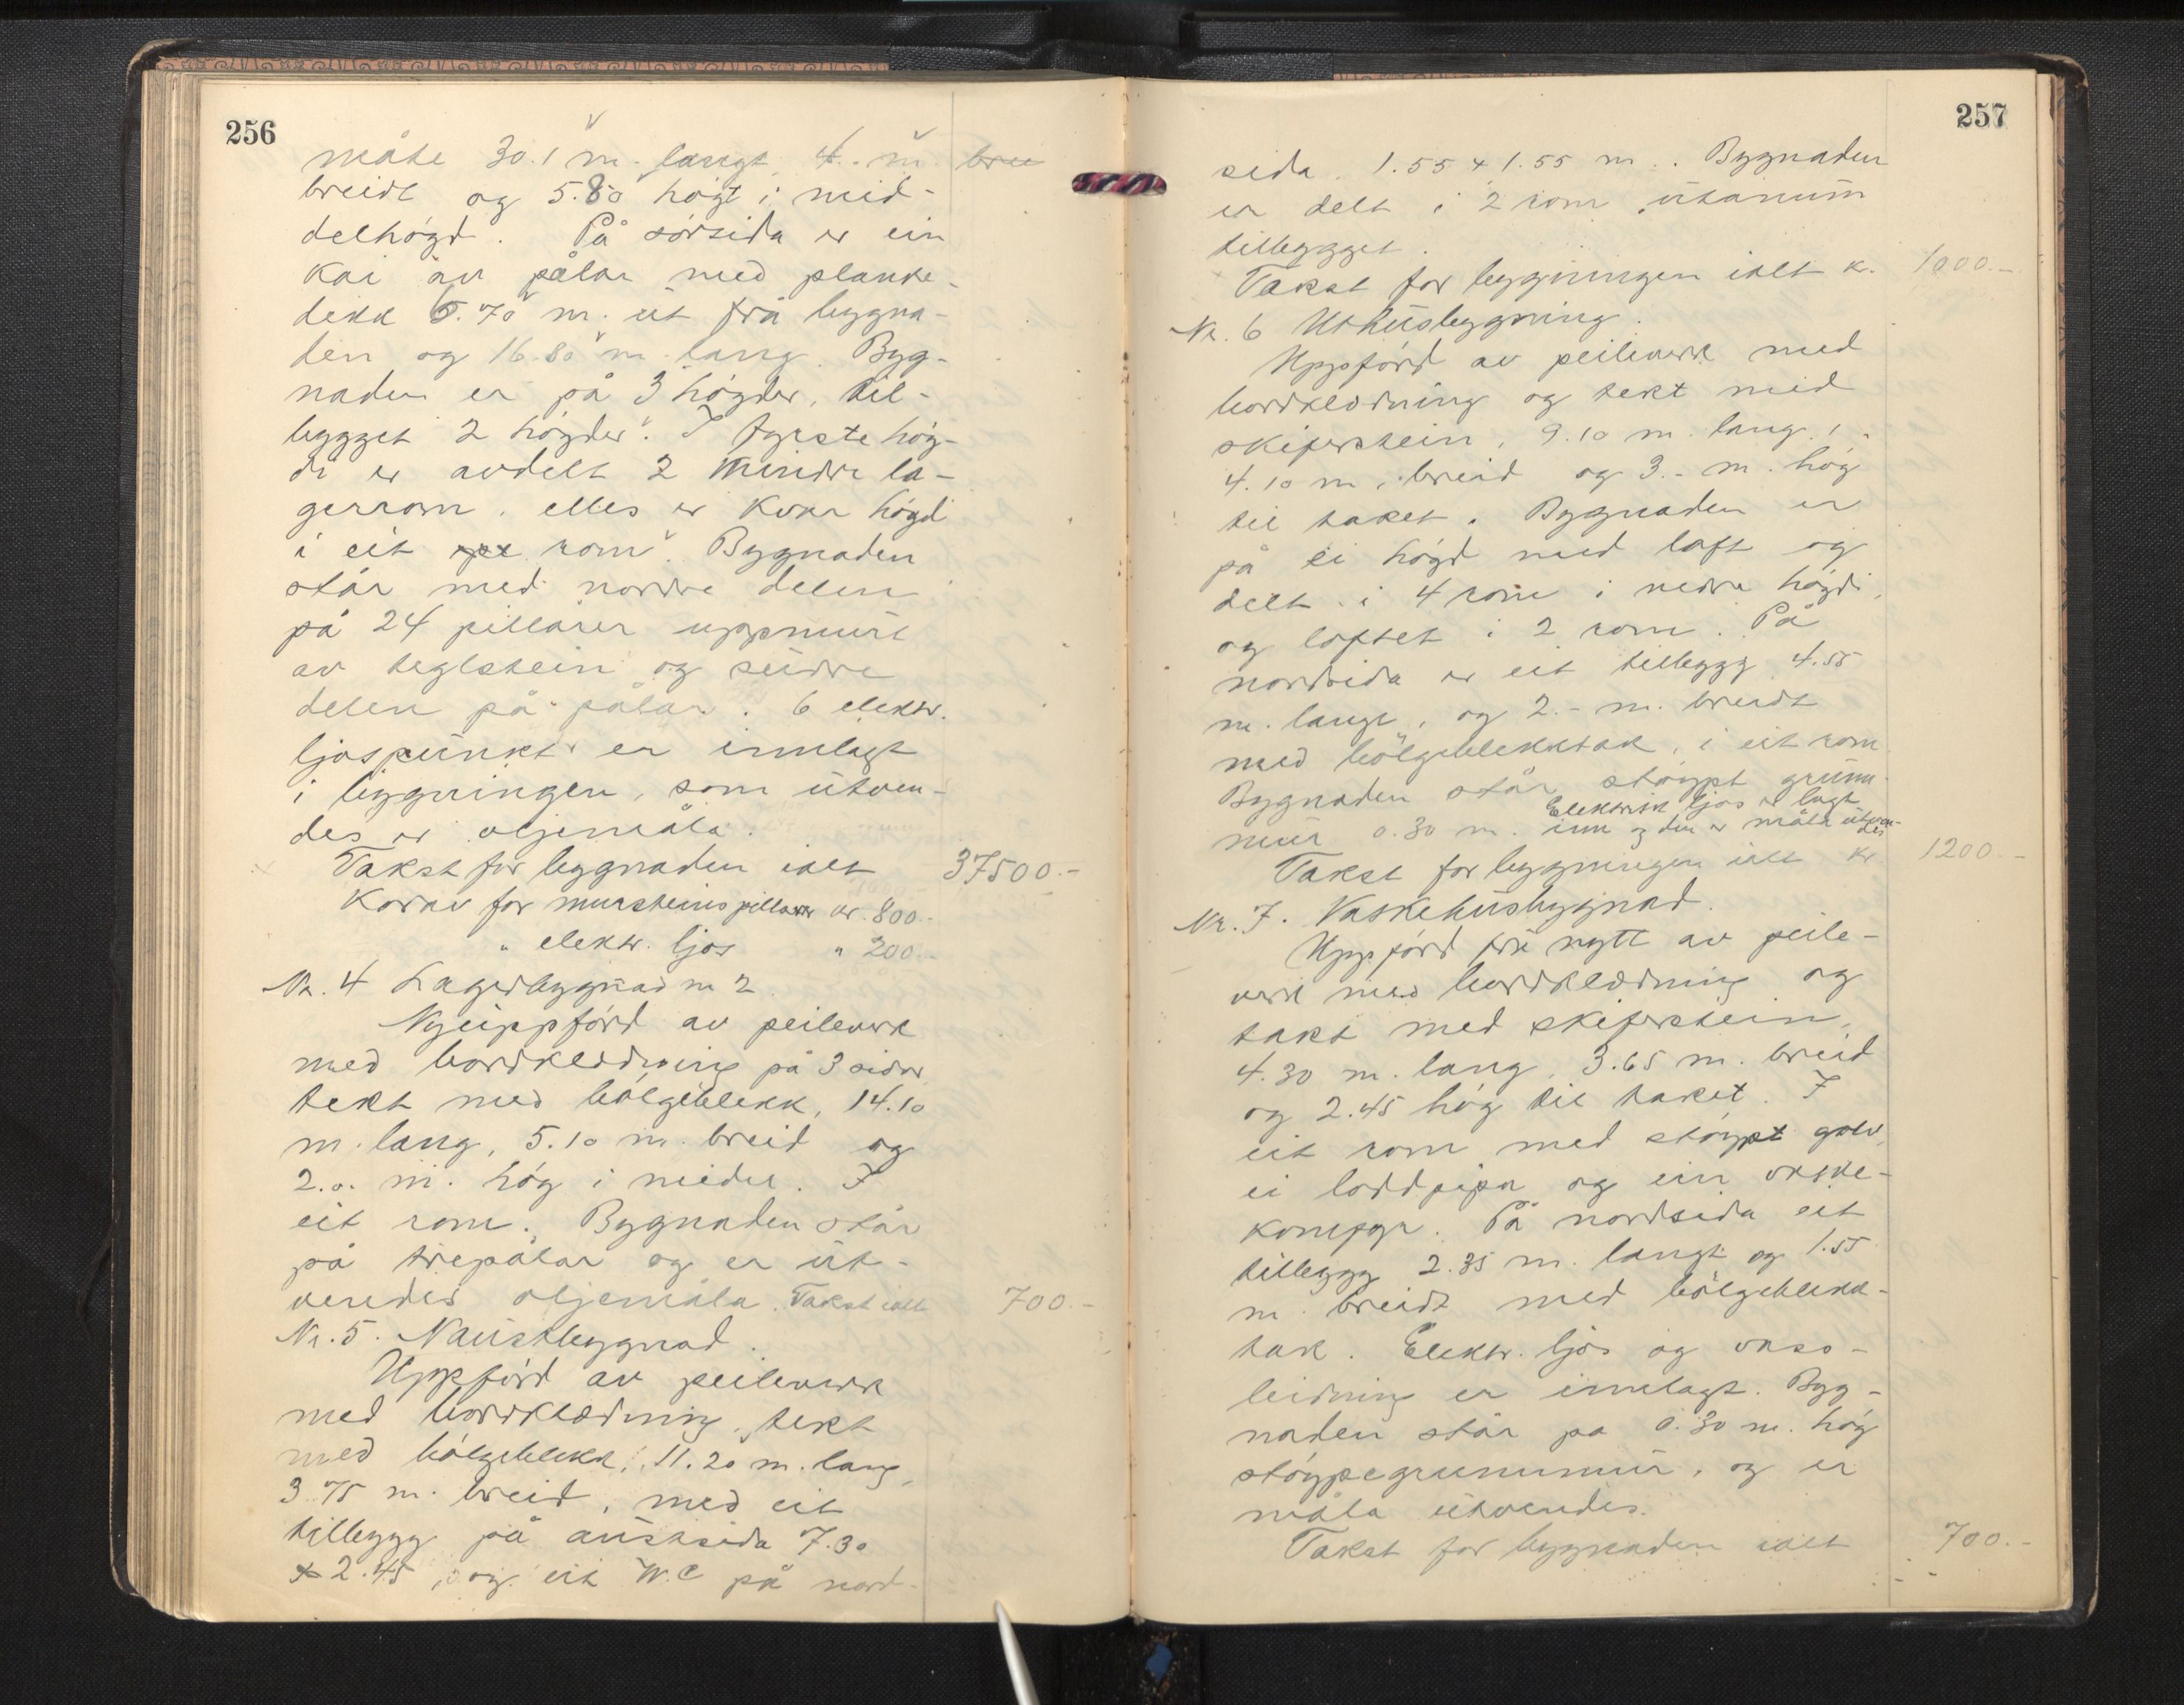 256
måte 30.1 m. langt, 4.- m. bree
breidt og 5.80 høgt i mid-
delhøgd. På sørsida er ein
kai av pålar med planke-
dekk 6.70 m. ut frå bygna-
den og 16.80 m. lang. Byg-
naden er på 3 høgder, til-
bygget 2 høgder. I fyrste høg-
di er avdelt 2 mindre la-
gerrom, elles er kvar høgdi
i eit rom. Bygnaden
står med nordre delen
på 24 pillarer uppmurt
av teglstein og südre
delen på pålar. 6 elektr.
ljospunkt er innlagt
i bygningen, som utven-
des er oljemåla.
Takst for bygnaden ialt 37500.-
Korav for mursteinspillarer kr. 800.-
" elektr. ljos " 200.-
Nr. 4 Lagerbygnad nr 2.
Nyuppførd av peileverk
med bordkledning på 3 sider
tekt med bölgeblekk, 14.10
m. lang, 5.10 m. breid og
2.0. m. høg i midel. I
eit rom. Bygnaden står
på trepålar og er ut-
vendes oljemåla. Takst ialt 700.-
Nr. 5. Naustbygnad.
Uppførd av peileverk
med bordkledning, tekt
med bölgeblekk, 11.20 m. lang,
3.75 m. breid, med eit
tilbygg på austsida 7.30
x 2.45, og eit W.C på nord-
257
sida. 1.55 x 1.55 m. Bygnaden
er delt i 2 rom utanum
tilbygget.
Takst for bygningen ialt kr. 1000.-
Nr. 6 Uthusbygning.
Uppførd av peileverk med
bordkledning og tekt med
skiferstein, 9.10 m. lang,
4.10 m. breid og 3.- m. høg
til taket. Bygnaden er
på ei høgd med loft og
delt i 4 rom i nedre høgdi,
og loftet i 2 rom. På
nordsida er eit tilbygg 4.55
m. langt, og 2.- m. breidt
med bölgeblekktak, i eit rom
Bygnaden står støypt grunn-
mur 0.30 m. Elektrisk ljos er lagt
inn og den er måla utven-
des
Takst for bygningen ialt kr 1200.-
Nr. 7. Vaskehusbygnad.
Uppførd frå nytt av peile-
verk med bordkledning og
takt med skiferstein,
4.30 m. lang, 3.65 m. breid
og 2.45 høg til taket. I
eit rom med støypt golv,
ei loddpipa og ein vaske-
komfyr. På nordsida eit
tilbygg 2.35 m. langt og 1.55
m. breidt med bölgeblekk-
tak. Elektr. ljos og vass-
leidning er innlagt. Byg-
naden står på 0.30 m. høg
støypegrunnmur, og er
måla utvendes.
Takst for bygnaden ialt 700.-